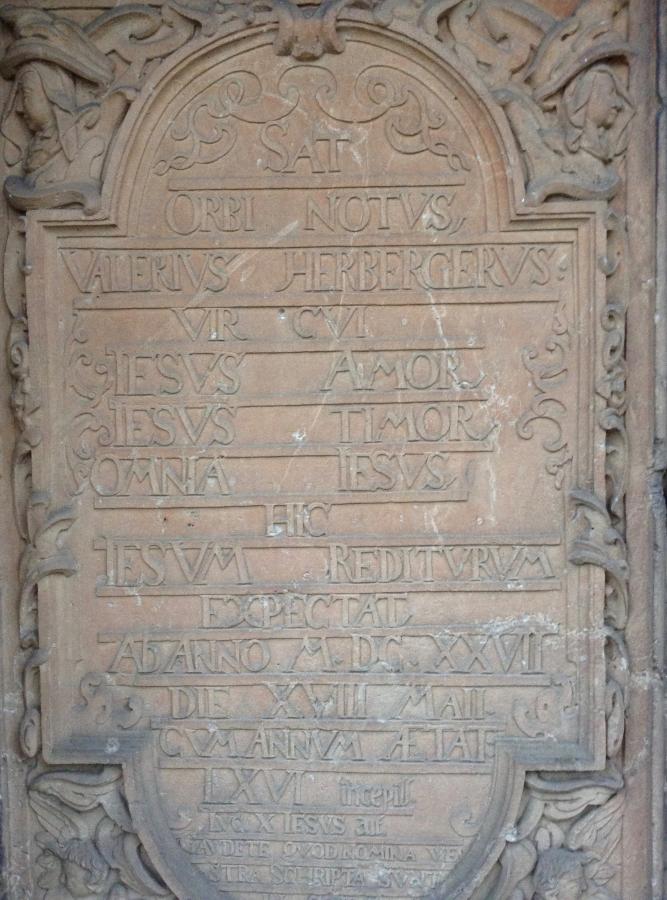 SAT
ORBI NOTVS,
VALERIVS HERBERGERVS.
VIR CVI
IESVS AMOR,
IESVS TIMOR,
OMNIA IESVS,
HIC
IESVM REDITVRVM
EXPECTAT
AD ANNO M.DC.XXVII
DIE XVIII MAII
CVM ANNVM ÆTAT
LXVI incepis.
LVC X IESVS ait
GAVDETE QVOD NOMINA VE
STRA SCRIPTA SVNT